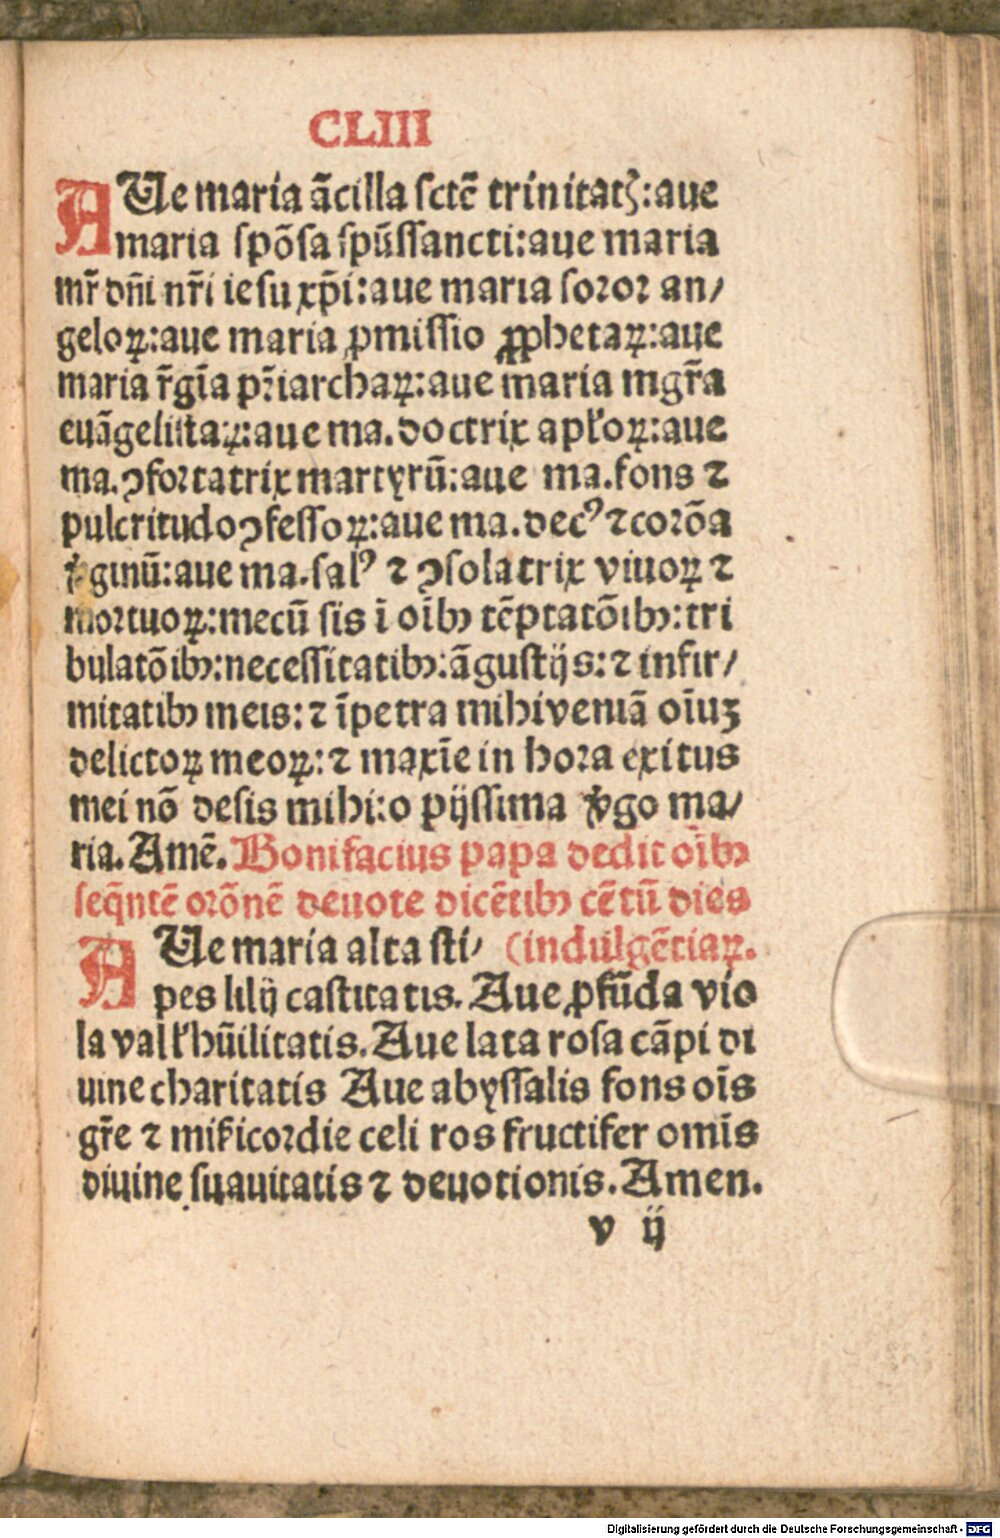 CLIII
AUe maria ãcilla sctẽ trinitatꝫ:aue
maria spõsa spũssancti:aue maria
mr̃ dñi nr̃i iesu xp̃i:aue maria soror an/
geloꝝ:aue maria ꝓmissio ꝓphetaꝝ:aue
maria r̃gĩa pr̃iarchaꝝ:aue maria mgr̃a
euãgelistaꝝ:aue ma.doctrix apl̃oꝝ:aue
ma.ꝯfortatrix martyrũ:aue ma.fons ⁊
pulcritudo ꝯfessoꝝ:aue ma.decꝰ ⁊ corõa
ꝟginũ:aue ma.salꝰ ⁊ ꝯsolatrix viuoꝝ ⁊
mortuoꝝ:mecũ sis ĩ oĩbꝫ tẽptatõibꝫ:tri
bulatõibꝫ:necessitatibꝫ:ãgustijs:⁊ infir/
mitatibꝫ meis:⁊ ĩpetra mihi veniã oĩuꝫ
delictoꝝ meoꝝ:⁊ maxĩe in hora exitus
mei nõ desis mihi:o pijssima ꝟgo ma/
ria.Amẽ.Bonifacius papa dedit oĩbꝫ
seq̃ntẽ orõnẽ deuote dicẽtibꝫ cẽtũ dies
AUe maria alta sti/ (indulgẽtiaꝝ.
pes lilij castitatis.Aue ꝓfũda vio
la vall̃ hũilitatis.Aue lata rosa cãpi di
uine charitatis Aue abyssalis fons oĩs
gr̃e ⁊ mĩsicordie celi ros fructifer omĩs
diuine suauitatis ⁊ deuotionis.Amen.
v ij
Digitalisierung gefördert durch die Deutsche Forschungsgemeinschaft - DFG